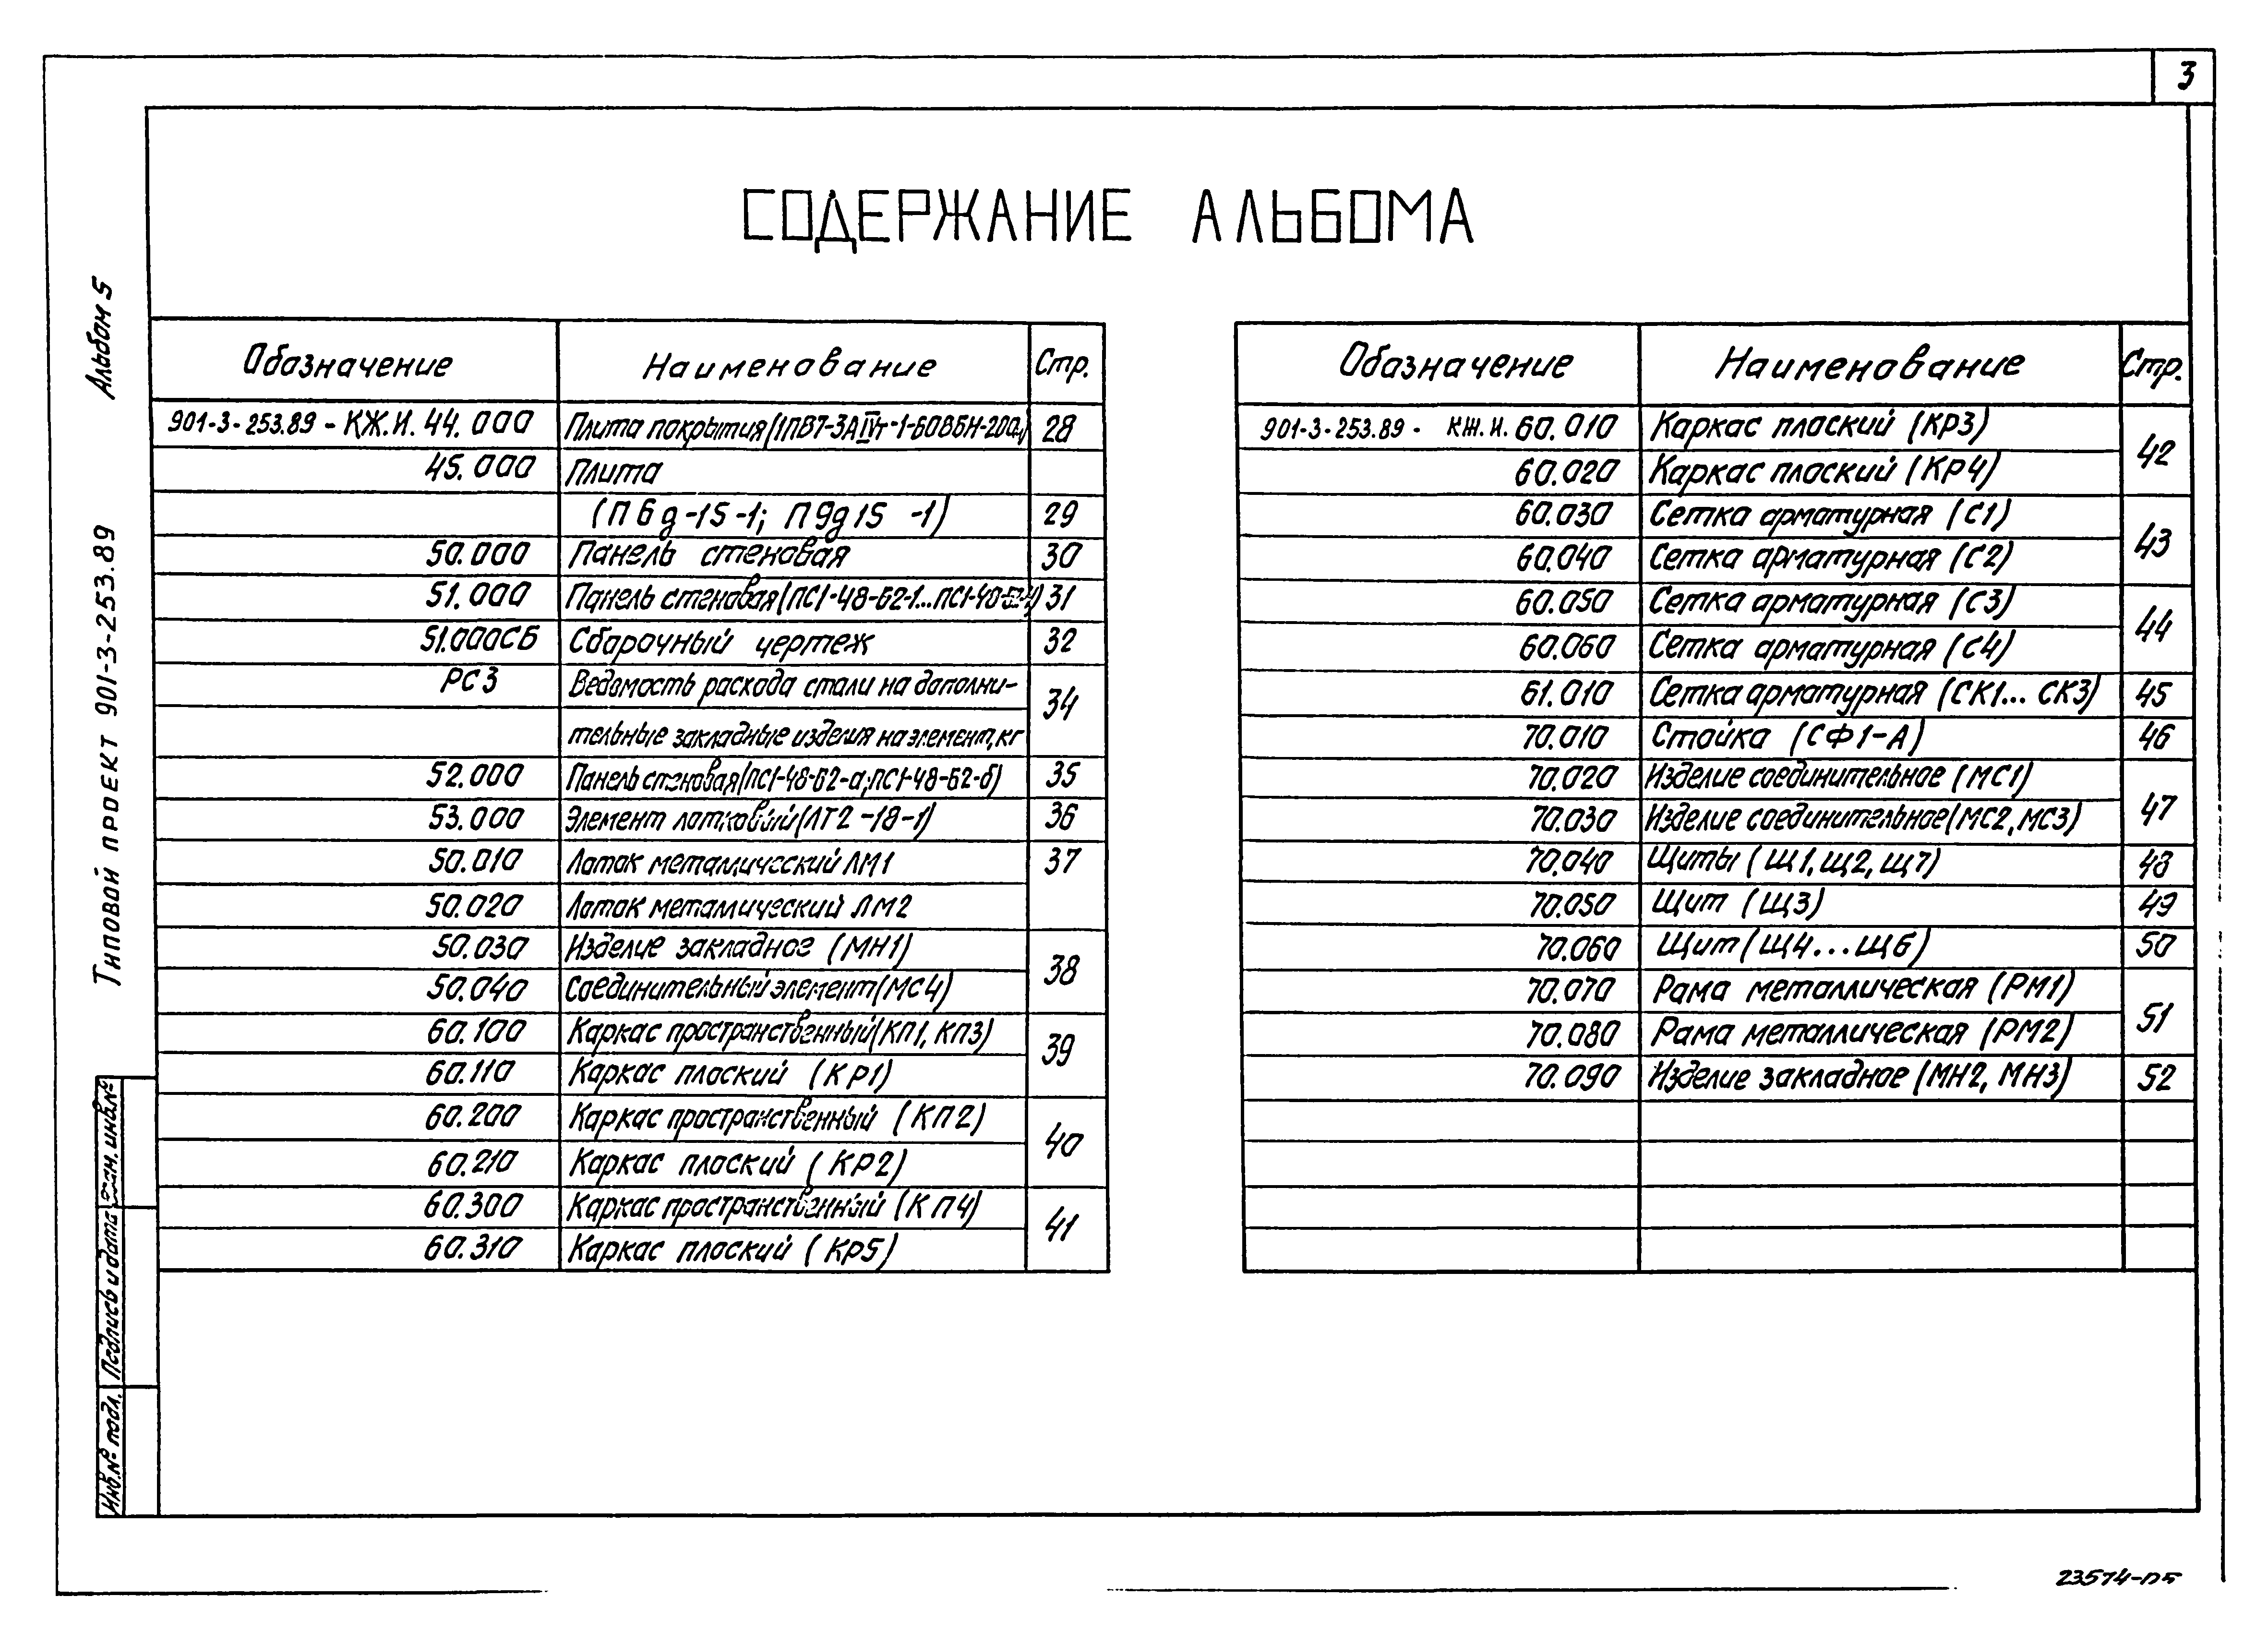 3
СОДЕРЖАНИЕ АЛЬБОМА
Альбом 5
Типовой проект 901-3-253.89
Обозначение Наименование Стр.
901-3-253.89 - КЖ.И. 44.000 Плита покрытия 28
45.000 Плита
(П6д-15-1; П9д15 -1) 29
50.000 Панель стеновая 30
51.000 Панель стеновая 31
51.000СБ Сборочный чертеж 32
РС3 Ведомость расхода стали на дополни- 34
тельные закладные изделия на элемент, кг
52.000 Панель стеновая (ПС1-48-Б2-а; ПС1-48-Б2-б) 35
53.000 Элемент лотковый (ЛТ2-18-1) 36
50.010 Лоток металлический ЛМ1 37
50.020 Лоток металлический ЛМ2
50.030 Изделие закладное (МН1) 38
50.040 Соединительный элемент (МС4)
60.100 Каркас пространственный (КП1, КП3) 39
60.110 Каркас плоский (КР1)
60.200 Каркас пространственный (КП2) 40
60.210 Каркас плоский (КР2)
60.300 Каркас пространственный (КП4) 41
60.310 Каркас плоский (КР5)
Обозначение Наименование Стр.
901-3-253.89 - КЖ.И. 60.010 Каркас плоский (КР3) 42
60.020 Каркас плоский (КР4)
60.030 Сетка арматурная (С1) 43
60.040 Сетка арматурная (С2)
60.050 Сетка арматурная (С3) 44
60.060 Сетка арматурная (С4)
61.010 Сетка арматурная (СК1... СК3) 45
70.010 Стойка (СФ1-А) 46
70.020 Изделие соединительное (МС1) 47
70.030 Изделие соединительное (МС2, МС3)
70.040 Щиты (Щ1, Щ2, Щ7) 48
70.050 Щит (Щ3) 49
70.060 Щит (Щ4...Щ6) 50
70.070 Рама металлическая (РМ1) 51
70.080 Рама металлическая (РМ2)
70.090 Изделие закладное (МН2, МН3) 52
Взам. инв.№
Подпись и дата
Инв.№ подл.
23574-05